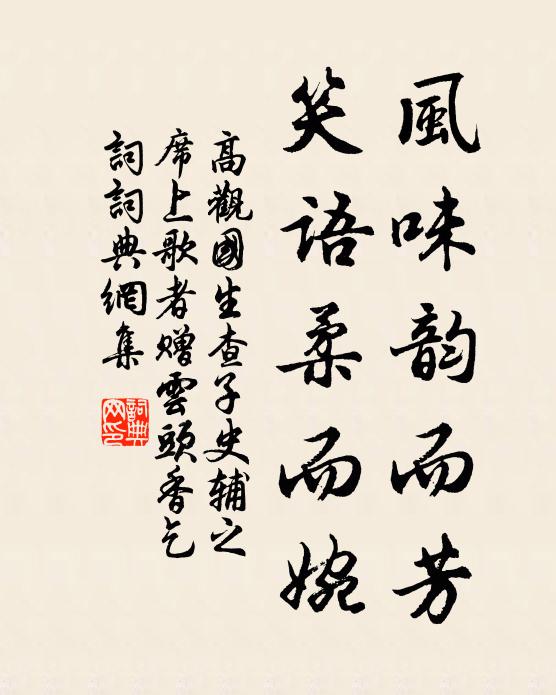 風味韵而芳
笑語柔而婉
高觀國生查子史辅之
席上歌者赠雲頭香乞
詞詞典網集
詞典网印